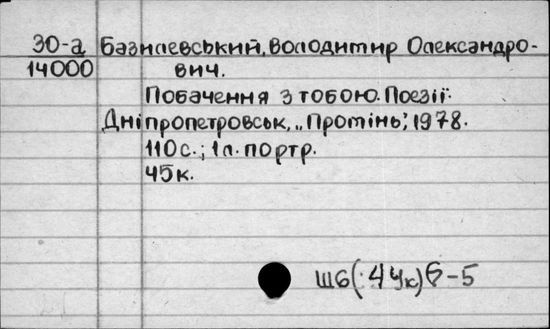 30-а Базилевський, Володимир Олександро-
14000 вич.
Побачення з тобою. Поезії.
Дніпропетровськ, „Промінь", 1978.
110 с.; 1 л. портр.
45 к.
Ш6(:4Ук)6-5